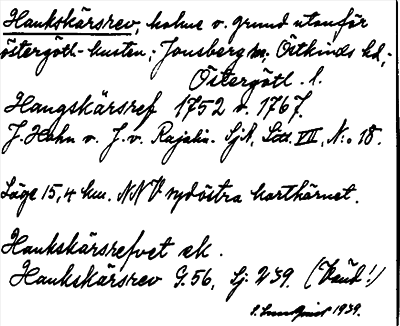 Haukskärsrev, holme o. grund utanför
östergötl-kusten; Jonsberg sn, Östkinds hd,
Östergötl. l.
Haugskärsref 1752 o. 1767.
J. Hahn o. J. v. Rajalin. SjA, Sect. VII, N:o 18.
Läge 15,4 km. NNV sydöstra karthörnet.
Haukskärsrefvet ek.
Haukskärsrev G. 56, Sj. 239. (Känd!)
1939.